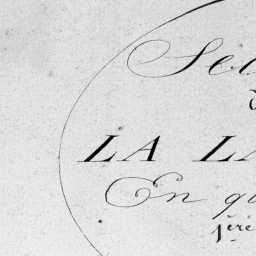 Sec
LA LA
En qu
jéré